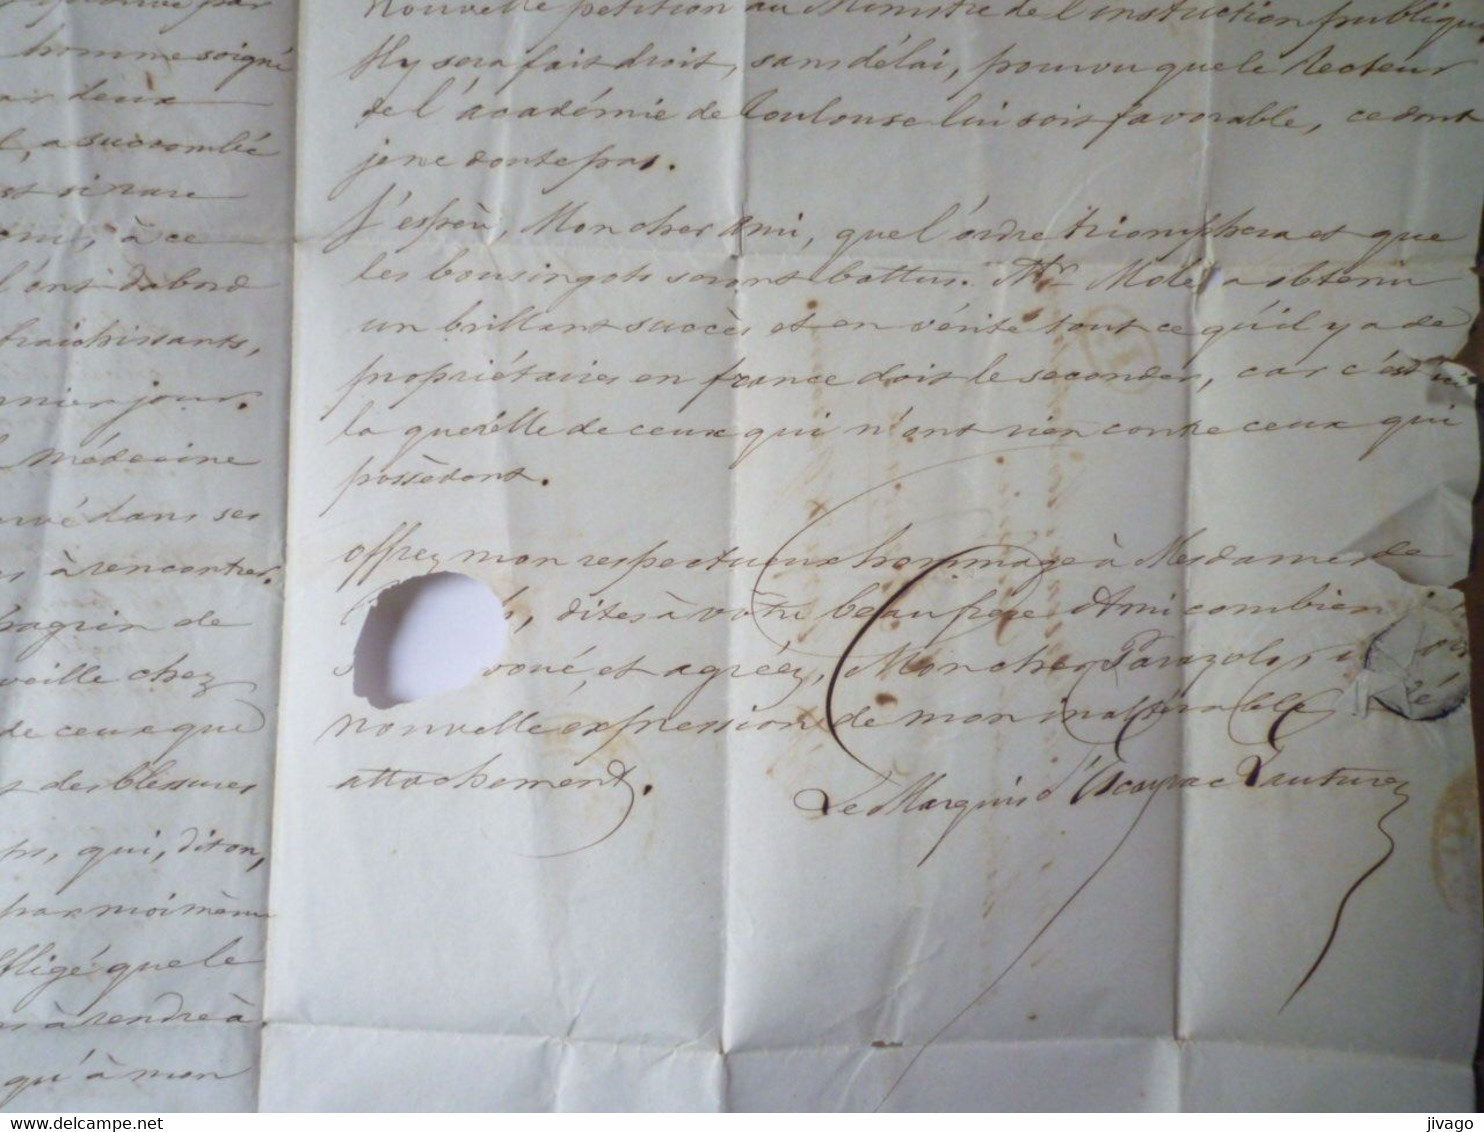 homme soigné
deux
a succombé
si rare
à ce
l'ont dabord
fraichissants,
jour.
Médecine
dans ses
à rencontrer.
chagrin de
veille chez
de ceux que
des blessures
qui, dit on,
par moi même
affligé que le
à rendre à
qu'à mon
nouvelle pétition au Ministre de l'instruction publique
Il y sera fait droit, sans délai, pourvu que le Recteur
de l'académie de Toulouse lui soit favorable, ce dont
je ne doute pas.
J'espère, Mon cher Ami, que l'ordre triomphera et que
les bousingots seront battus. Mr Molé a obtenu
un brillant succès et en vérité tout ce qu'il y a de
propriétaires en france doit le seconder, car c'est ici
la querelle de ceux qui n'ont rien contre ceux qui
possèdent.
offrez mon respectueux hommage à Mesdames de
dites à votre beau frère Ami combien
voué, et agréez, Mon cher Parazols,
nouvelle expression de mon inaltérable
attachement.
Le Marquis d'Escayrac Lauture
jivago